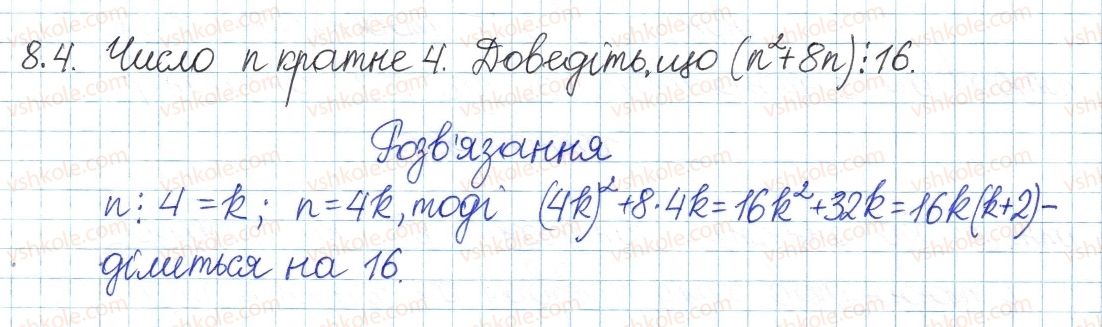 8.4. Число n кратне 4. Доведіть, що (n²+8n)⋮16.
Розв'язання
n⋮4=k; n=4k, тоді (4k)²+8·4k=16k²+32k=16k(k+2)–
ділиться на 16.